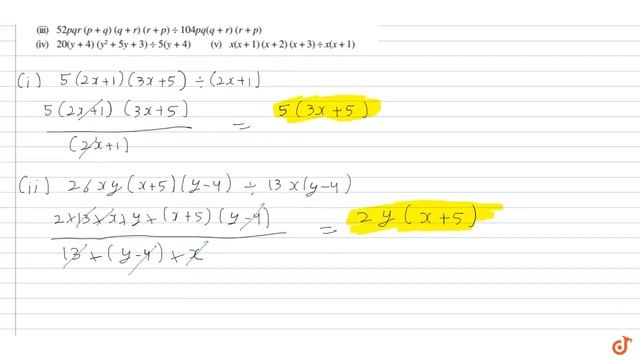 (iii) 52pqr (p + q) (q + r) (r + p) ÷ 104pq(q + r) (r + p)
(iv) 20(y + 4) (y² + 5y + 3) ÷ 5(y + 4) (v) x(x + 1) (x + 2) (x + 3) ÷ x(x + 1)
(i) 5(2x+1)(3x+5) ÷ (2x+1)
5(2x+1) (3x+5) / (2x+1) = 5(3x+5)
(ii) 26xy(x+5)(y-4) ÷ 13x(y-4)
2×13×x×y×(x+5)(y-4) / 13×(y-4)×x = 2y(x+5)